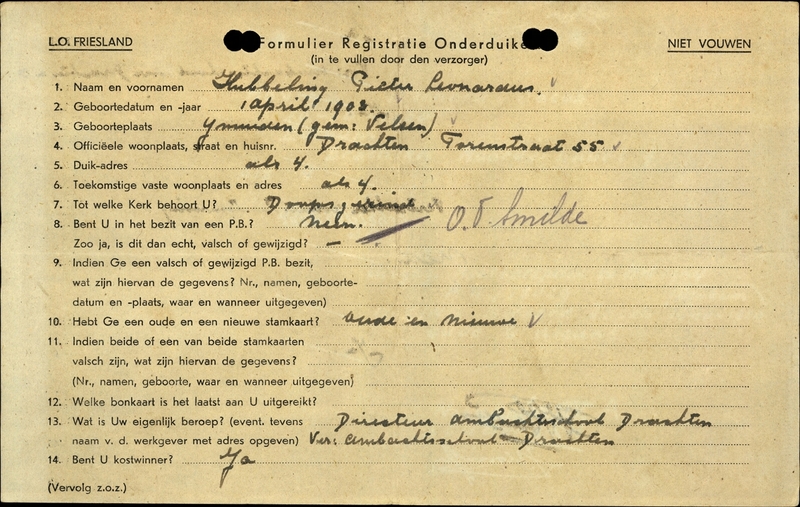 L.O. FRIESLAND
Formulier Registratie Onderduike
NIET VOUWEN
(in te vullen door den verzorger)
1. Naam en voornamen Hubbeling Pieter Leonardus.
2. Geboortedatum en -jaar 1 april 1908.
3. Geboorteplaats Ymuiden (gem: Velsen)
4. Officiëele woonplaats, straat en huisnr. Drachten Torenstraat 55
5. Duik-adres als 4.
6. Toekomstige vaste woonplaats en adres als 4.
7. Tot welke Kerk behoort U? Doopsgezind
8. Bent U in het bezit van een P.B.? Neen. O.D. Smilde
Zoo ja, is dit dan echt, valsch of gewijzigd? —
9. Indien Ge een valsch of gewijzigd P.B. bezit,
wat zijn hiervan de gegevens? Nr., namen, geboorte-
datum en -plaats, waar en wanneer uitgegeven)
10. Hebt Ge een oude en een nieuwe stamkaart? oude en nieuwe
11. Indien beide of een van beide stamkaarten
valsch zijn, wat zijn hiervan de gegevens?
(Nr., namen, geboorte, waar en wanneer uitgegeven)
12. Welke bonkaart is het laatst aan U uitgereikt?
13. Wat is Uw eigenlijk beroep? (event. tevens Directeur ambachtsschool Drachten
naam v. d. werkgever met adres opgeven) Ver: ambachtsschool Drachten
14. Bent U kostwinner? Ja
(Vervolg z.o.z.)